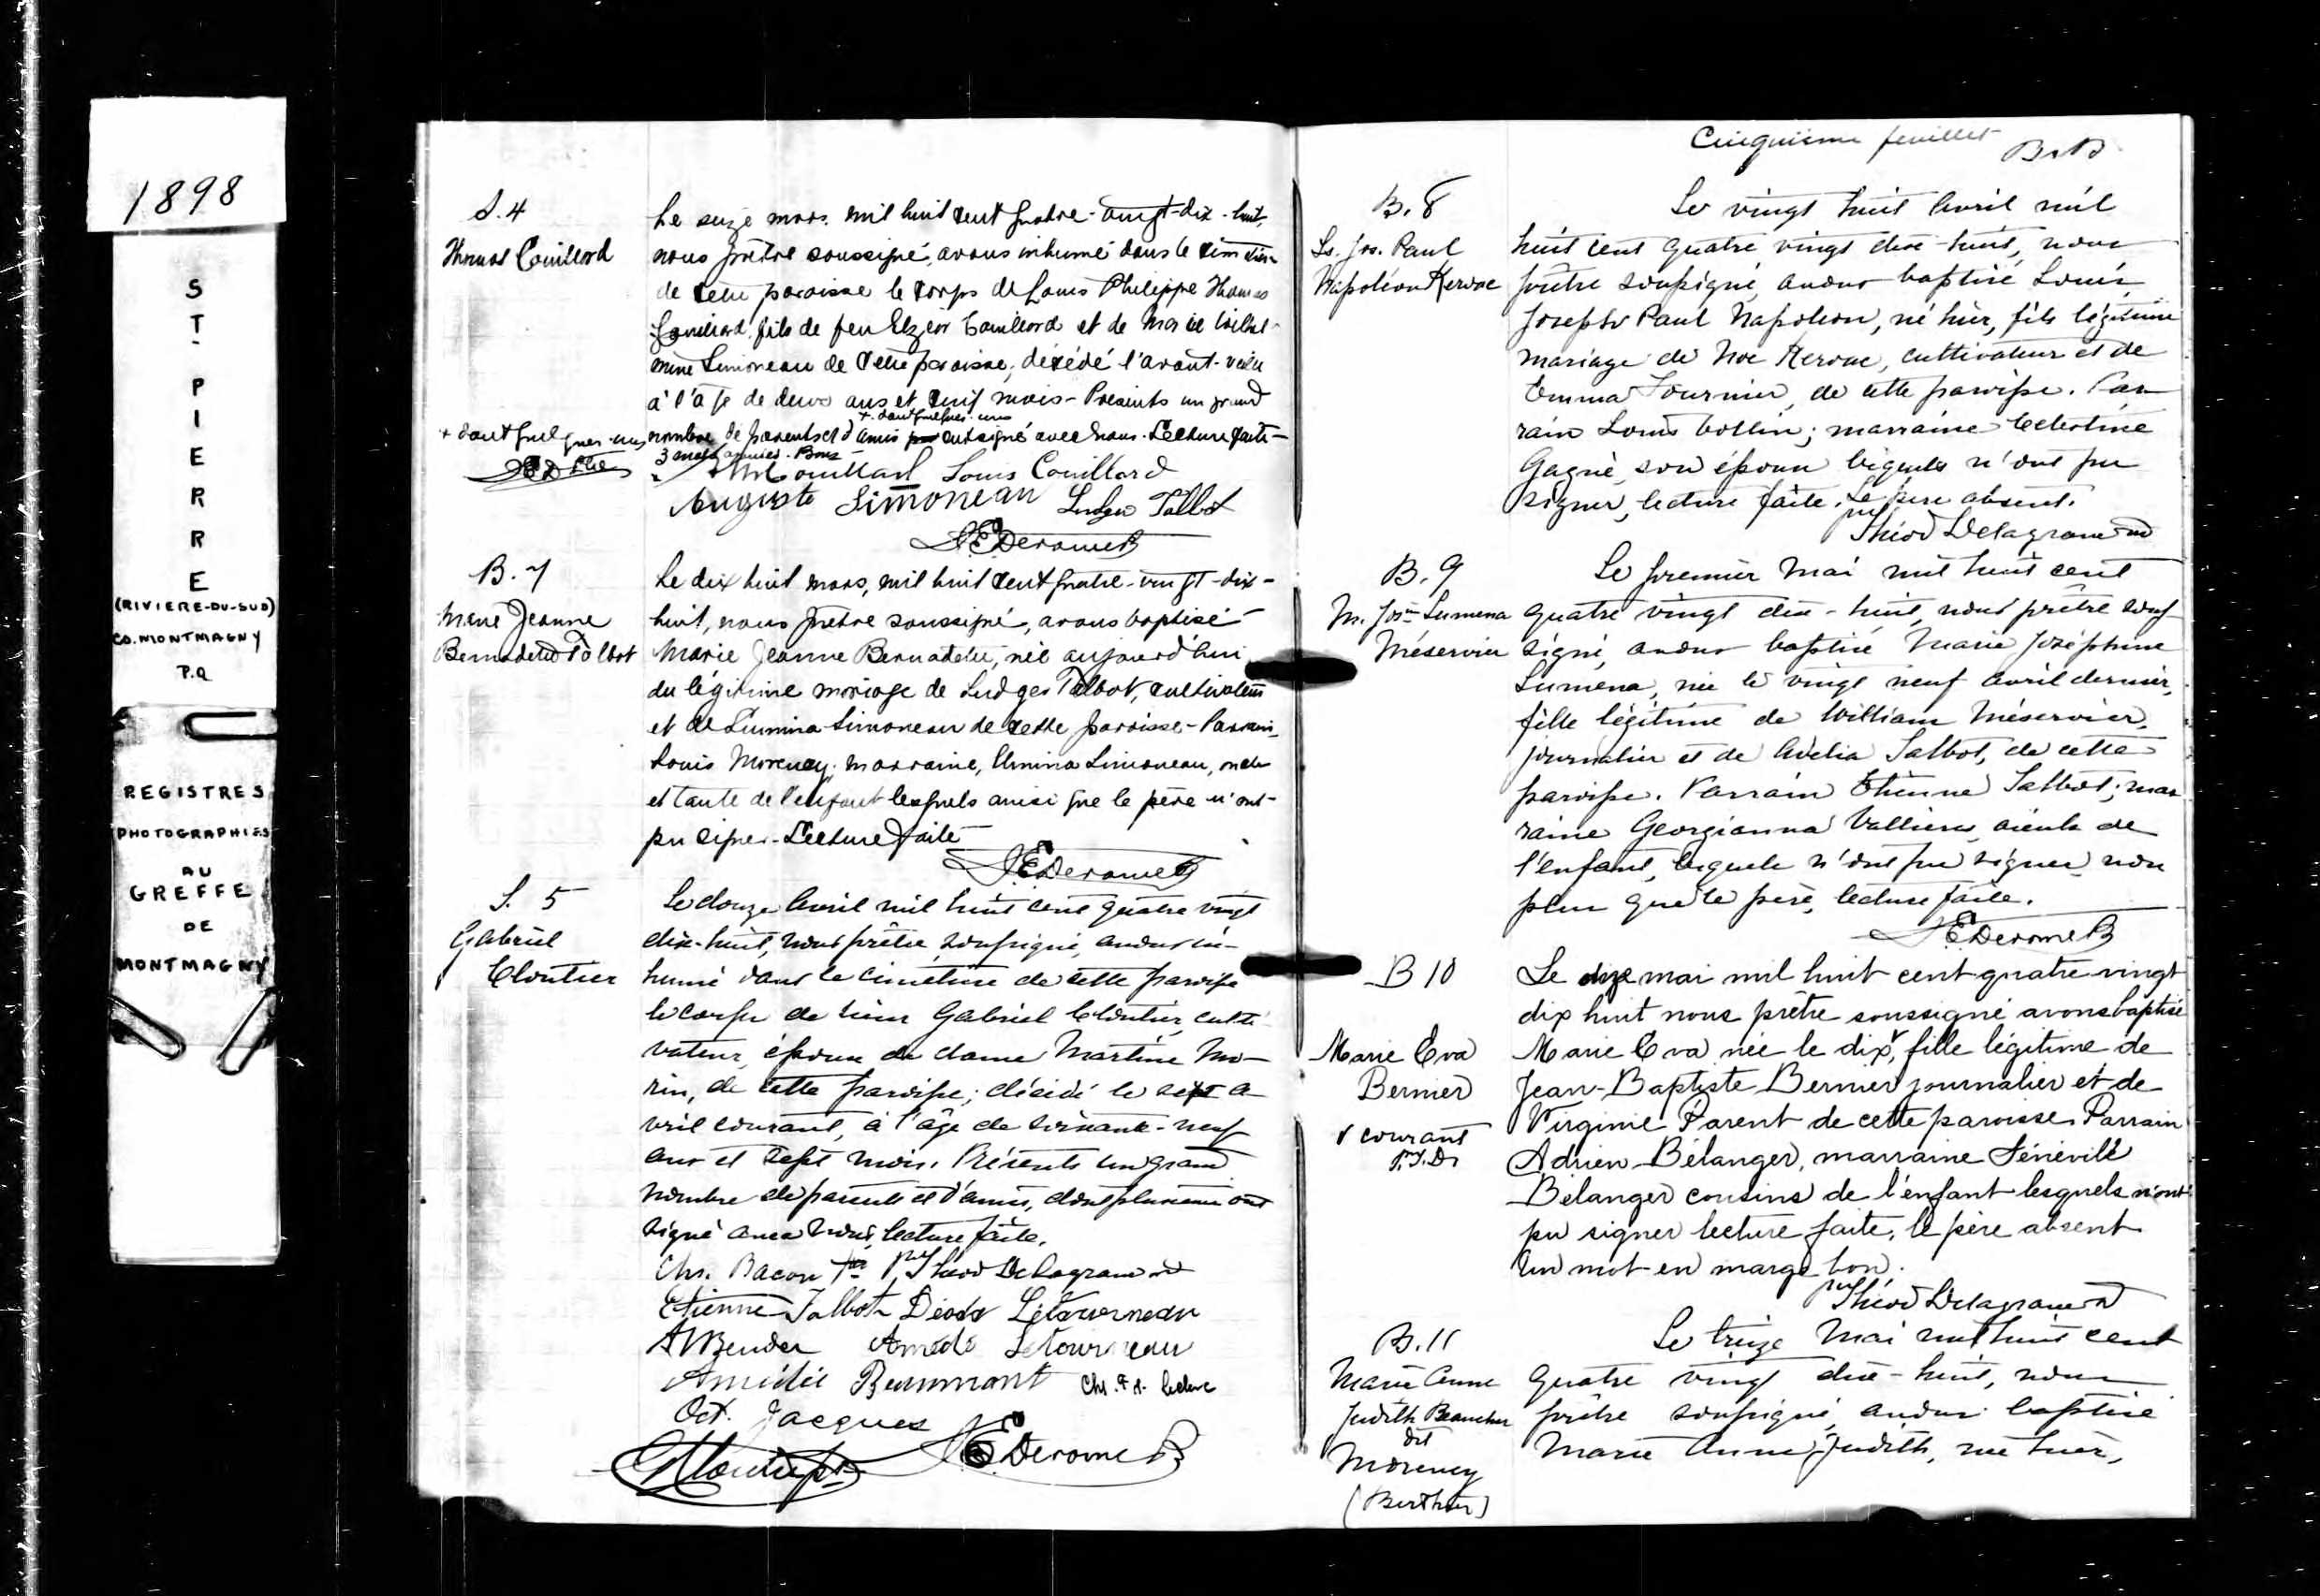 1898
ST
PIERRE
(RIVIERE-DU-SUD)
CO. MONTMAGNY
P.Q
REGISTRES
PHOTOGRAPHIES
AU
GREFFE
DE
MONTMAGNY
S. 4
Thomas Couillard
Le seize mars mil huit cent quatre-vingt-dix-huit,
nous prêtre soussigné, avons inhumé dans le
de cette paroisse le corps de Louis Philippe Thomas
Couillard fils de feu Elzear Couillard et de Marie
Simoneau de cette paroisse, décédé l'avant-veille
à l'âge de deux ans et mois - Présents un grand
+ dont quelques-uns
+ dont quelques-uns
nombre de parents et d'amis ont signé avec nous. Lecture faite -
3 mots Bons
Couillard Louis Couillard
Auguste Simoneau Ludger Talbot
J.E. Derome
B. 7
Marie Jeanne
Bernadette Talbot
Le dix huit mars, mil huit cent quatre-vingt-dix-
huit, nous prêtre soussigné, avons baptisé
Marie Jeanne Bernadette, née aujourd'hui
du légitime mariage de Ludger Talbot, cultivateur
et de Simoneau de cette paroisse - Parrain,
Louis Morency, marraine, Simoneau, oncle
et tante de l'enfant lesquels ainsi que le père n'ont
pu signer - Lecture faite
J.E. Derome
S. 5
Gabriel
Cloutier
Le douze Avril mil huit cent quatre vingt
dix-huit, nous prêtre soussigné, avons in-
humé dans le cimetière de cette paroisse
le corps de sieur Gabriel Cloutier, culti-
vateur, époux de dame Martine Mo-
rin, de cette paroisse; décédé le sept a-
vril courant, à l'âge de soixante-neuf
ans et sept mois. Présents un grand
nombre de parents et d'amis, dont plusieurs ont
signé avec nous, lecture faite.
Chs. Bacon Ptre Théod Delagrave
Etienne Talbot Létourneau
A Bender Amédé Letourneau
Amédée Beaumont Chs.
Oct. Jacques
Cloutier J.E. Derome
Cinquième feuillet
B. 8
Ls. Jos. Paul
Napoléon Keroac
Le vingt huit Avril mil
huit cent quatre vingt dix-huit, nous
prêtre soussigné avons baptisé Louis
Joseph Paul Napoléon, né hier, fils légitime
mariage de Noe Keroac, cultivateur et de
Emma Fournier, de cette paroisse. Par-
rain Louis Collin; marraine Celestine
Gagné, son épouse lesquels n'ont pu
signer, lecture faite. Le père absent.
Théod Delagrave
B. 9
M. Josne Lumena
Méservier
Le premier Mai mil huit cent
quatre vingt dix-huit, nous prêtre sous-
signé, avons baptisé Marie Joséphine
Lumena, née le vingt neuf Avril dernier,
fille légitime de William Méservier,
journalier et de Adélia Talbot, de cette
paroisse. Parrain Etienne Talbot; mar-
raine Georgianna Vallières, aieuls de
l'enfant, lesquels n'ont pu signer non
plus que le père, lecture faite.
J.E. Derome
B 10
Marie Eva
Bernier
√ courant
P.T.D.
Le mai mil huit cent quatre vingt
dix huit nous prêtre soussigné avons baptisé
Marie Eva née le dix√, fille légitime de
Jean-Baptiste Bernier journalier et de
Virginie Parent de cette paroisse Parrain
Adrien Bélanger, marraine
Bélanger cousins de l'enfant lesquels n'ont
pu signer lecture faite, le père absent
Un mot en marge bon.
Théod Delagrave
B. 11
Marie Anne
Judith Beaucher
dit
Morency
(Berthier)
Le treize Mai mil huit cent
quatre vingt dix-huit, nous
prêtre soussigné, avons baptisé
Marie Anne Judith, née hier,